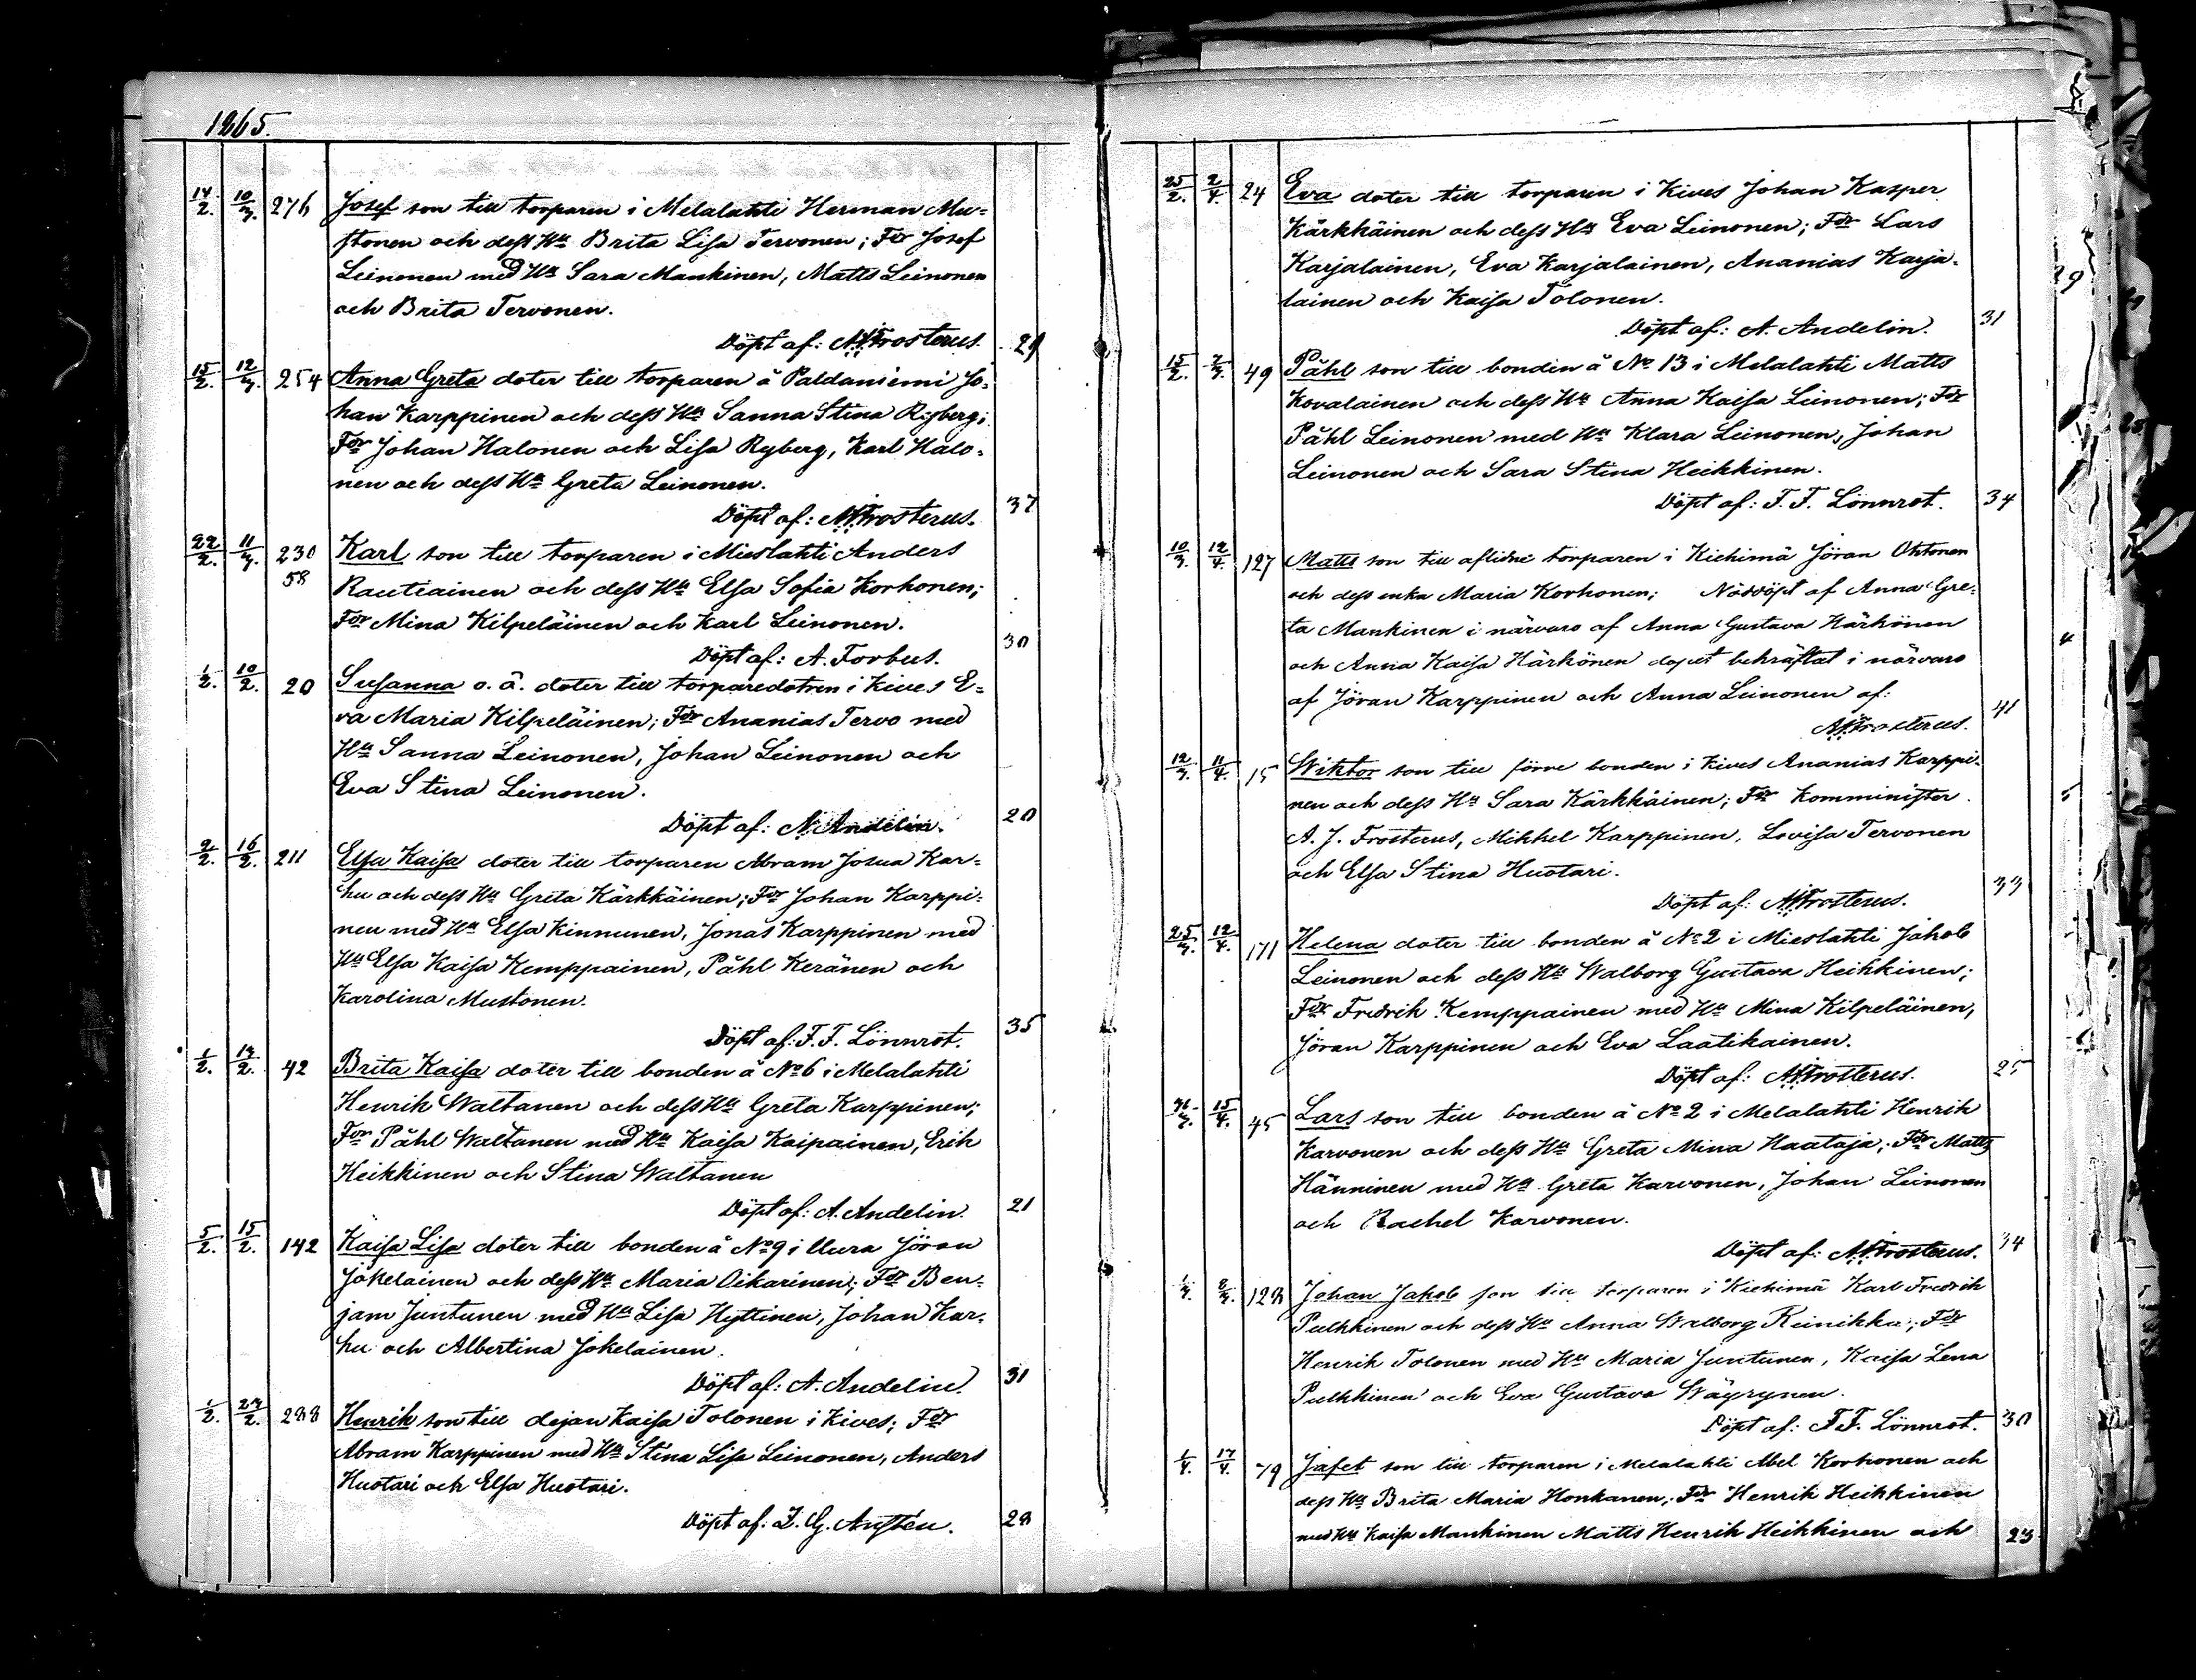 1865.
14/2. 10/3. 276 Josef son till torparen i Melalahti Herman Mu-
stonen och dess Hu Brita Lisa Tervonen; Fdr Josef
Leinonen med Hu Sara Mankinen, Matts Leinonen
och Brita Tervonen.
Döpt af: A.J. Frosterus. 29
15/2. 12/3. 254 Anna Greta doter till torparen å Paldaniemi Jo-
han Karppinen och dess Hu Sanna Stina Ryberg;
Fdr Johan Halonen och Lisa Ryberg, Karl Halo-
nen och dess Hu Greta Leinonen.
Döpt af: A.J. Frosterus. 37
22/2. 11/3. 230 Karl son till torparen i Mieslahti Anders
58 Rautiainen och dess Hu Elsa Sofia Korhonen;
Fdr Mina Kilpeläinen och Karl Leinonen.
Döpt af: A. Forbus. 30
1/2. 10/2. 20 Susanna o. ä. doter till torparedotren i Kives E-
va Maria Kilpeläinen; Fdr Ananias Tervo med
Hu Sanna Leinonen, Johan Leinonen och
Eva Stina Leinonen.
Döpt af: A. Andelin. 20
9/2. 16/2. 211 Elsa Kaisa doter till torparen Abram Josua Kar-
hu och dess Hu Greta Kärkkäinen; Fdr Johan Karppi-
nen med Hu Elsa Kinnunen, Jonas Karppinen med
Hu Elsa Kaisa Kemppainen, Påhl Keränen och
Karolina Mustonen.
Döpt af: F. F. Lönnrot. 35
1/2. 14/2. 42 Brita Kaisa doter till bonden å No 6 i Melalahti
Henrik Waltanen och dess Hu Greta Karppinen;
Fdr Påhl Waltanen med Hu Kaisa Kaipainen, Erik
Heikkinen och Stina Waltanen
Döpt af: A. Andelin. 21
5/2. 15/2. 142 Kaisa Lisa doter till bonden å No 9 i Uura Jöran
Jokelainen och dess Hu Maria Oikarinen; Fdr Ben-
jam Juntunen med Hu Lisa Hyttinen, Johan Kar-
hu och Albertina Jokelainen.
Döpt af: A. Andelin. 31
1/2. 24/2. 288 Henrik son till dejan Kaisa Tolonen i Kives; Fdr
Abram Karppinen med Hu Stina Lisa Leinonen, Anders
Huotari och Elsa Huotari.
Döpt af: Z. G. 28
25/2. 2/4. 24 Eva doter till torparen i Kives Johan Kasper
Kärkkäinen och dess Hu Eva Leinonen; Fdr Lars
Karjalainen, Eva Karjalainen, Ananias Karja-
lainen och Kaisa Tolonen.
Döpt af: A. Andelin. 31
15/2. 7/3. 49 Påhl son till bonden å No 13 i Melalahti Matts
Kovalainen och dess Hu Anna Kaisa Leinonen; Fdr
Påhl Leinonen med Hu Klara Leinonen, Johan
Leinonen och Sara Stina Heikkinen.
Döpt af: F. F. Lönnrot. 34
10/3. 12/4. 127 Matts son till aflidne torparen i Kiehimä Jöran Ohtonen
och dess enka Maria Korhonen; Nöddöpt af Anna Gre-
ta Mankinen i närvaro af Anna Gustava Härkönen
och Anna Kaisa Härkönen dopet bekräftat i närvaro
af Jöran Karppinen och Anna Leinonen af:
A.J. Frosterus. 41
12/3. 11/4. 15 Wiktor son till förre bonden i Kives Ananias Karppi-
nen och dess Hu Sara Kärkkäinen; Fdr Komminister
A. J. Frosterus, Mikkel Karppinen, Lovisa Tervonen
och Elsa Stina Huotari.
Döpt af: A.J. Frosterus. 33
25/3. 12/4. 171 Helena doter till bonden å No 2 i Mieslahti Jakob
Leinonen och dess Hu Walborg Gustava Heikkinen;
Fdr Fredrik Kemppainen med Hu Mina Kilpeläinen,
Jöran Karppinen och Eva Laatikainen.
Döpt af: A.J. Frosterus. 25
15/4. 45 Lars son till bonden å No 2 i Melalahti Henrik
Karvonen och dess Hu Greta Mina Haataja; Fdr Matts
Hänninen med Hu Greta Karvonen, Johan Leinonen
och Rachel Karvonen.
Döpt af: A.J. Frosterus. 34
1/3. 8/3. 128 Johan Jakob son till torparen i Kiehimä Karl Fredrik
Pulkkinen och dess Hu Anna Walborg Reinikka; Fdr
Henrik Tolonen med Hu Maria Juntunen, Kaisa Lena
Pulkkinen och Eva Gustava Wäyrynen.
Döpt af: F. F. Lönnrot. 30
1/4. 17/4. 79 Jafet son till torparen i Melalahti Abel Korhonen och
dess Hu Brita Maria Honkanen; Fdr Henrik Heikkinen
med Hu Kaisa Mankinen Matts Henrik Heikkinen och 23